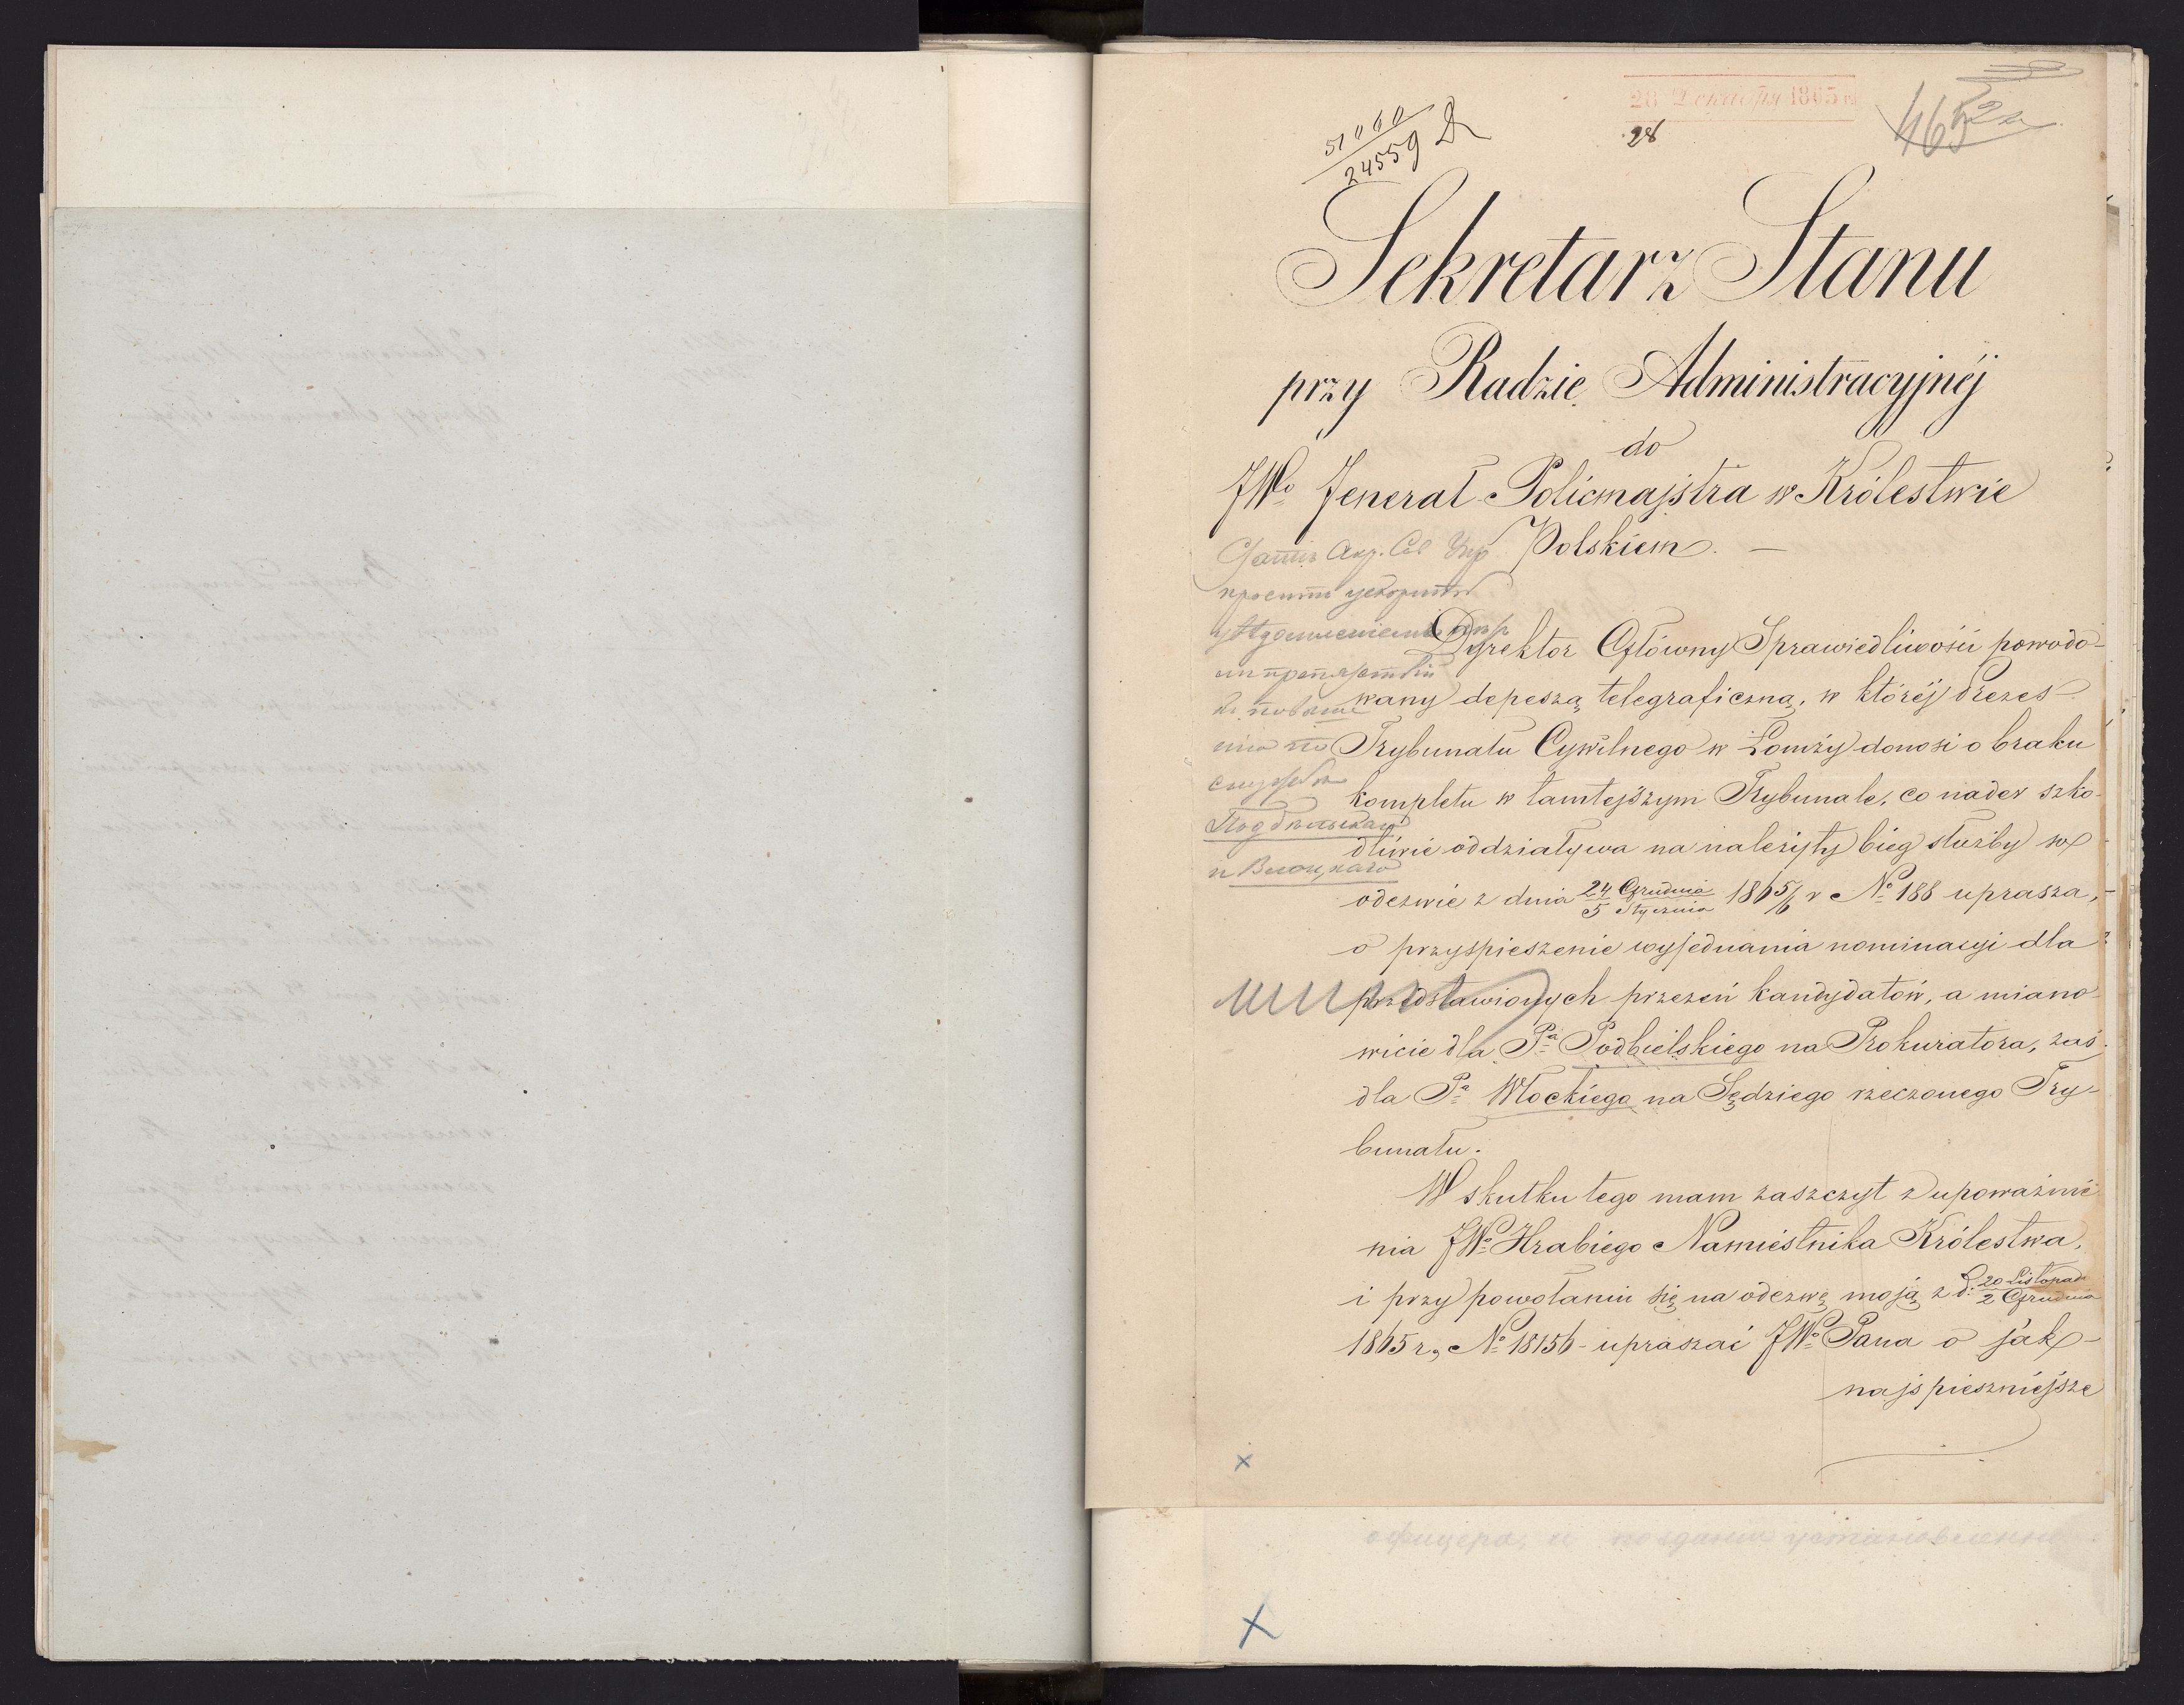 28 Декабря 1865
28
51060
24559
465
Sekretarz Stanu
przy Radzie Administracyjnéj
do
JWo Jenerał Policmajstra w Królestwie
Polskiem. —
просить ускорить
Dyrektor Główny Sprawiedliwości powodo-
wany depeszą telegraficzną, w któréj Prezes
Trybunału Cywilnego w Łomży donosi o braku
kompletu w tamtejszym Trybunale, co nader szko-
dliwie oddziaływa na należyty bieg służby w
odezwie z dnia 24 Grudnia / 5 Stycznia 1865/6 r No 188 uprasza,
o przyspieszenie wyjednania nominacyi dla
przedstawionych przezeń kandydatów, a miano-
wicie dla Pa Podbielskiego na Prokuratora, zaś
dla Pa Włockiego na Sędziego rzeczonego Try-
bunału.
W skutku tego mam zaszczyt z upoważnie
nia JWo Hrabiego Namiestnika Królestwa,
i przy powołaniu się na odezwę moją z d: 20 Listopada / 2 Grudnia
1865 r, No 18156 - upraszać JWo Pana o jak-
najspieszniejsze
офицера, и